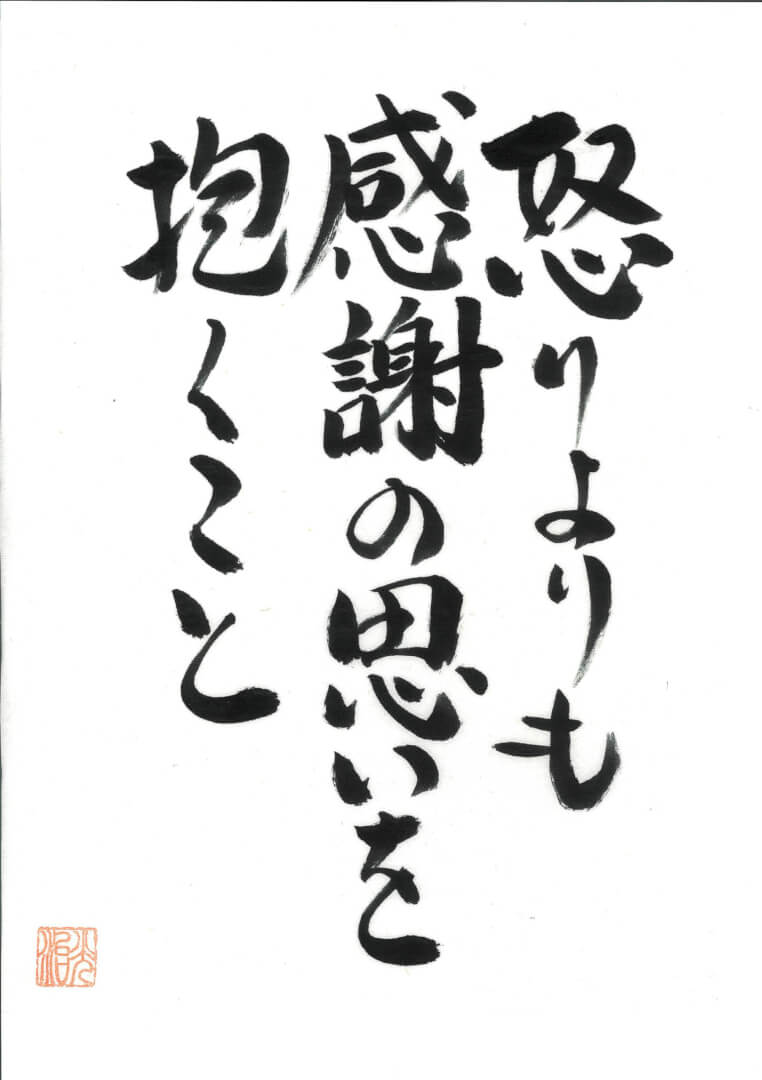 怒りよりも
感謝の思いを
抱くこと